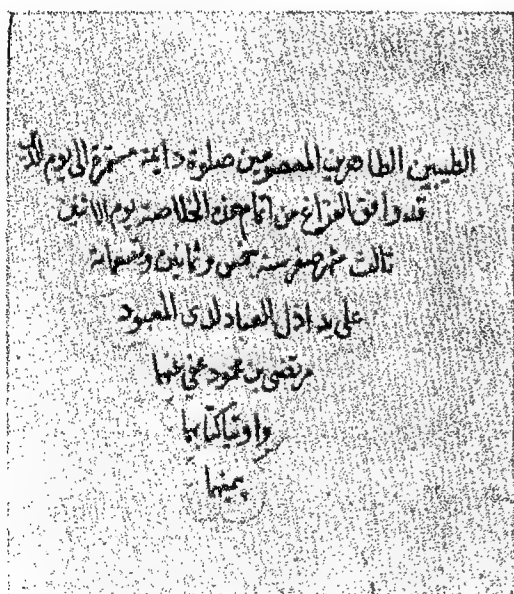 الطيبين الطاهرين المعصومين صلوة دايمة مستمرة الى يوم الدين
قد وافق الفراغ من اتمام هذه الخلاصة يوم الاثنين
ثالث شهر صفر سنة خمس وثمانين وتسعمائة
على يد اذل العباد لدى المعبود
مرتضى بن محمود عفي عنهما
واوتيا كتابهما
بيمينهما